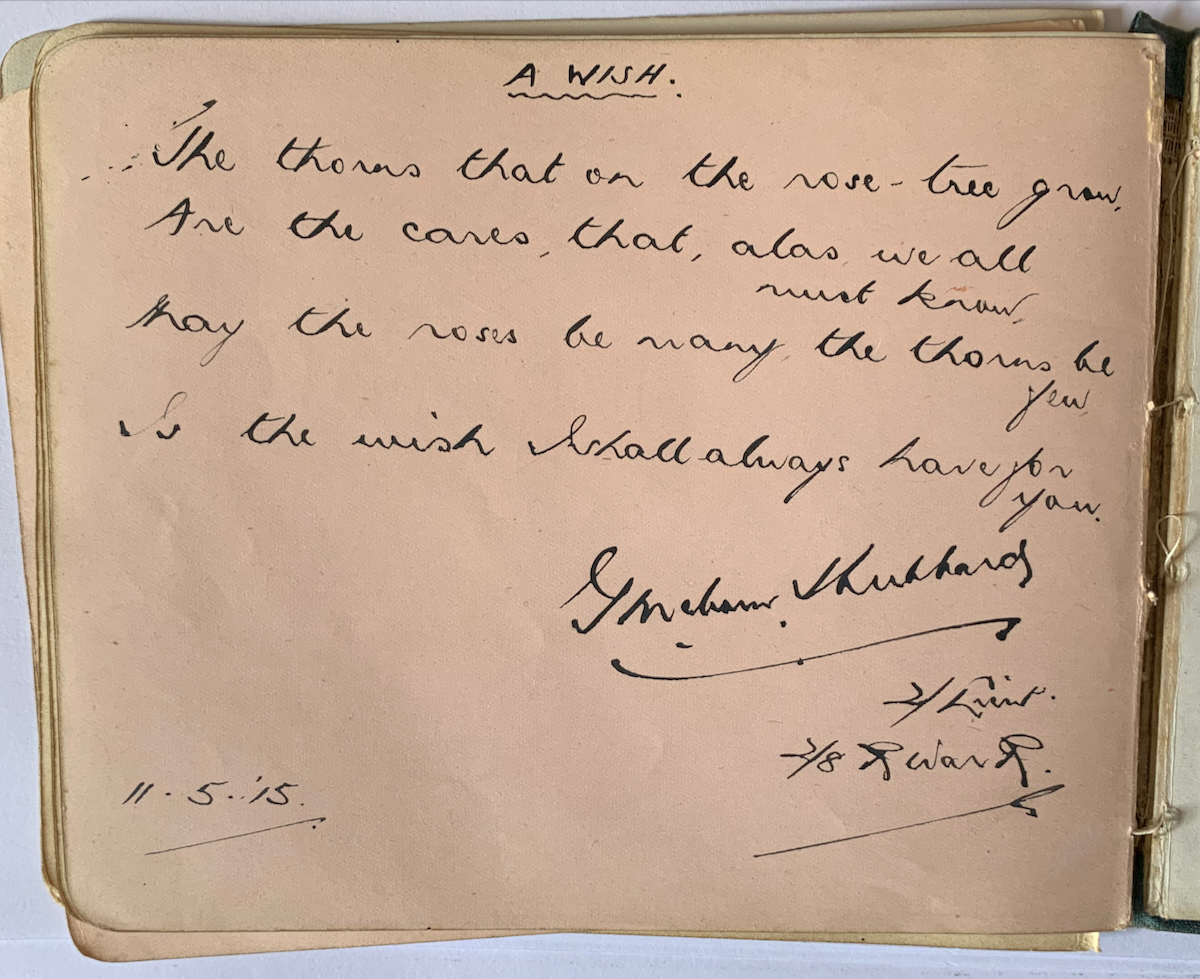 A WISH.
The thorns that on the rose-tree grow,
Are the cares, that, alas, we all
must know,
May the roses be many, the thorns be
few,
Is the wish I shall always have for
you.
2/Lieut.
2/8 R War R.
11.5.'15.